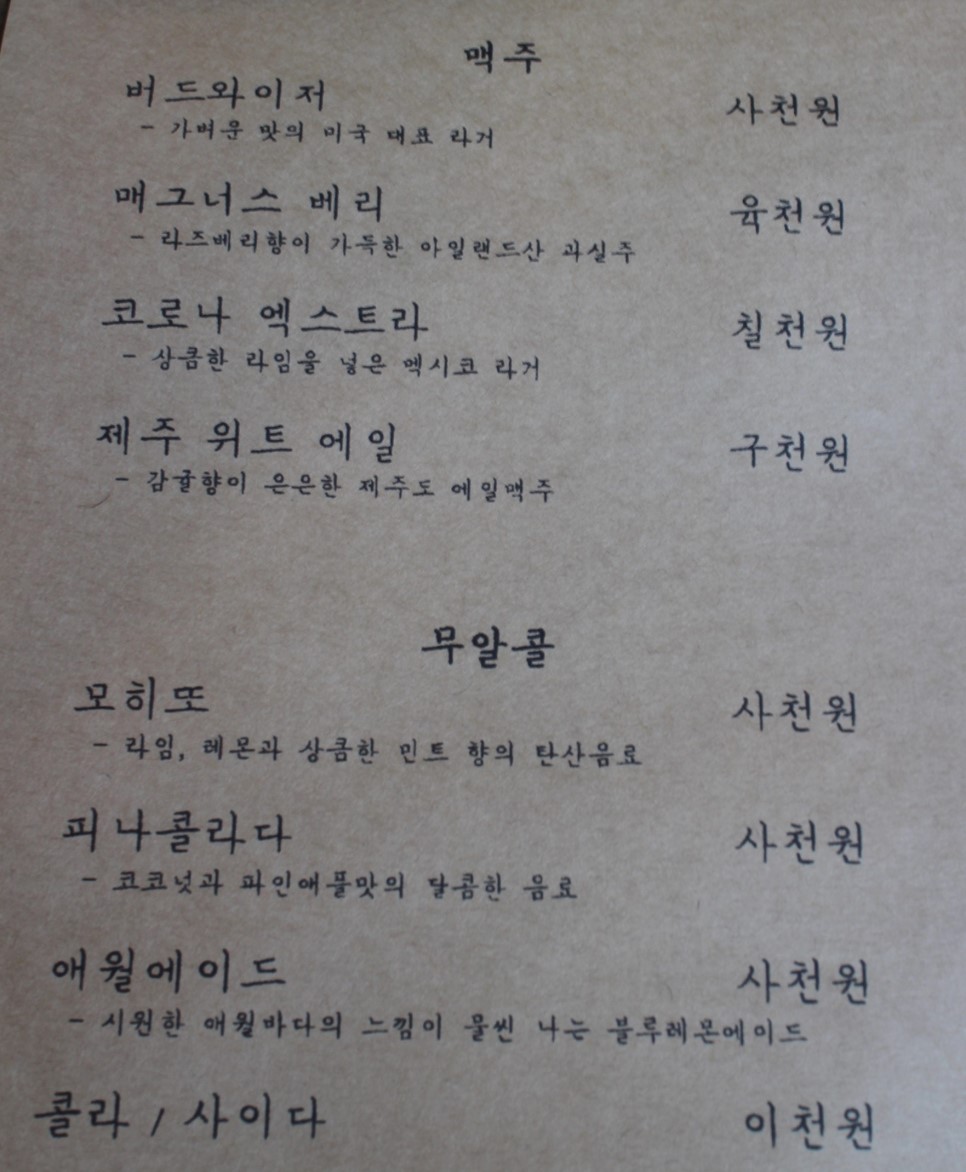 맥주
버드와이저 사천원
- 가벼운 맛의 미국 대표 라거
매그너스 베리 육천원
- 라즈베리향이 가득한 아일랜드산 과실주
코로나 엑스트라 칠천원
- 상큼한 라임을 넣은 멕시코 라거
제주 위트 에일 구천원
- 감귤향이 은은한 제주도 에일맥주
무알콜
모히또 사천원
- 라임, 레몬과 상큼한 민트 향의 탄산음료
피나콜라다 사천원
- 코코넛과 파인애플맛의 달콤한 음료
애월에이드 사천원
- 시원한 애월바다의 느낌이 물씬 나는 블루레몬에이드
콜라 / 사이다 이천원